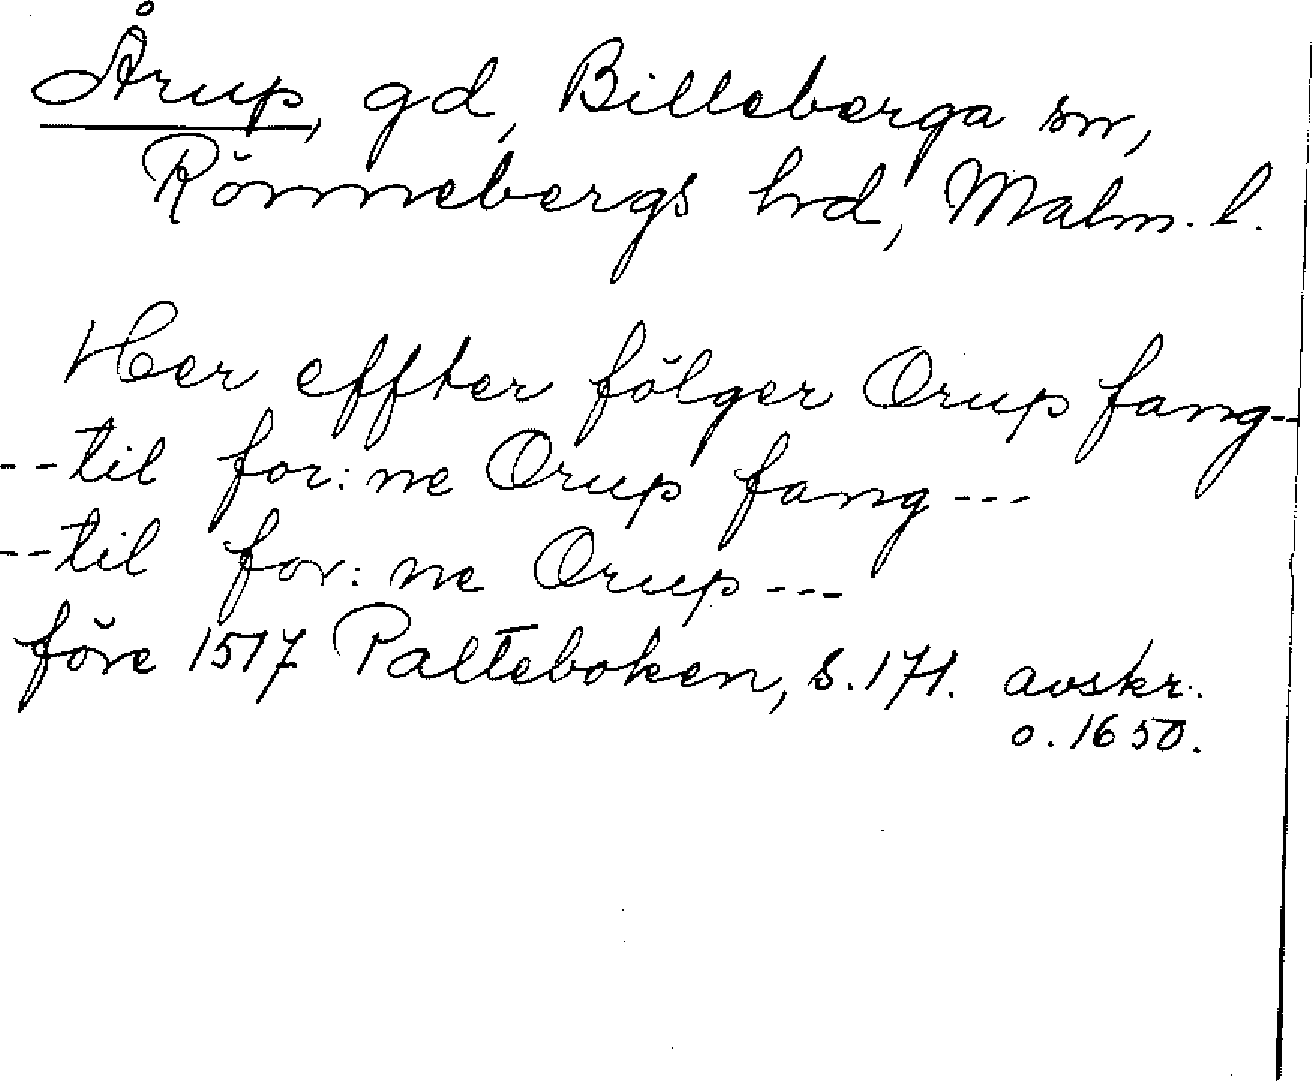 Årup, gd, Billeberga sn,
Rönnebergs hd, Malm. l.
Her effter fölger Orup fang--
--til for: ne Orup fang---
--til for: ne Orup---
före 1517 Palteboken, s. 171. avskr.
o. 1650.